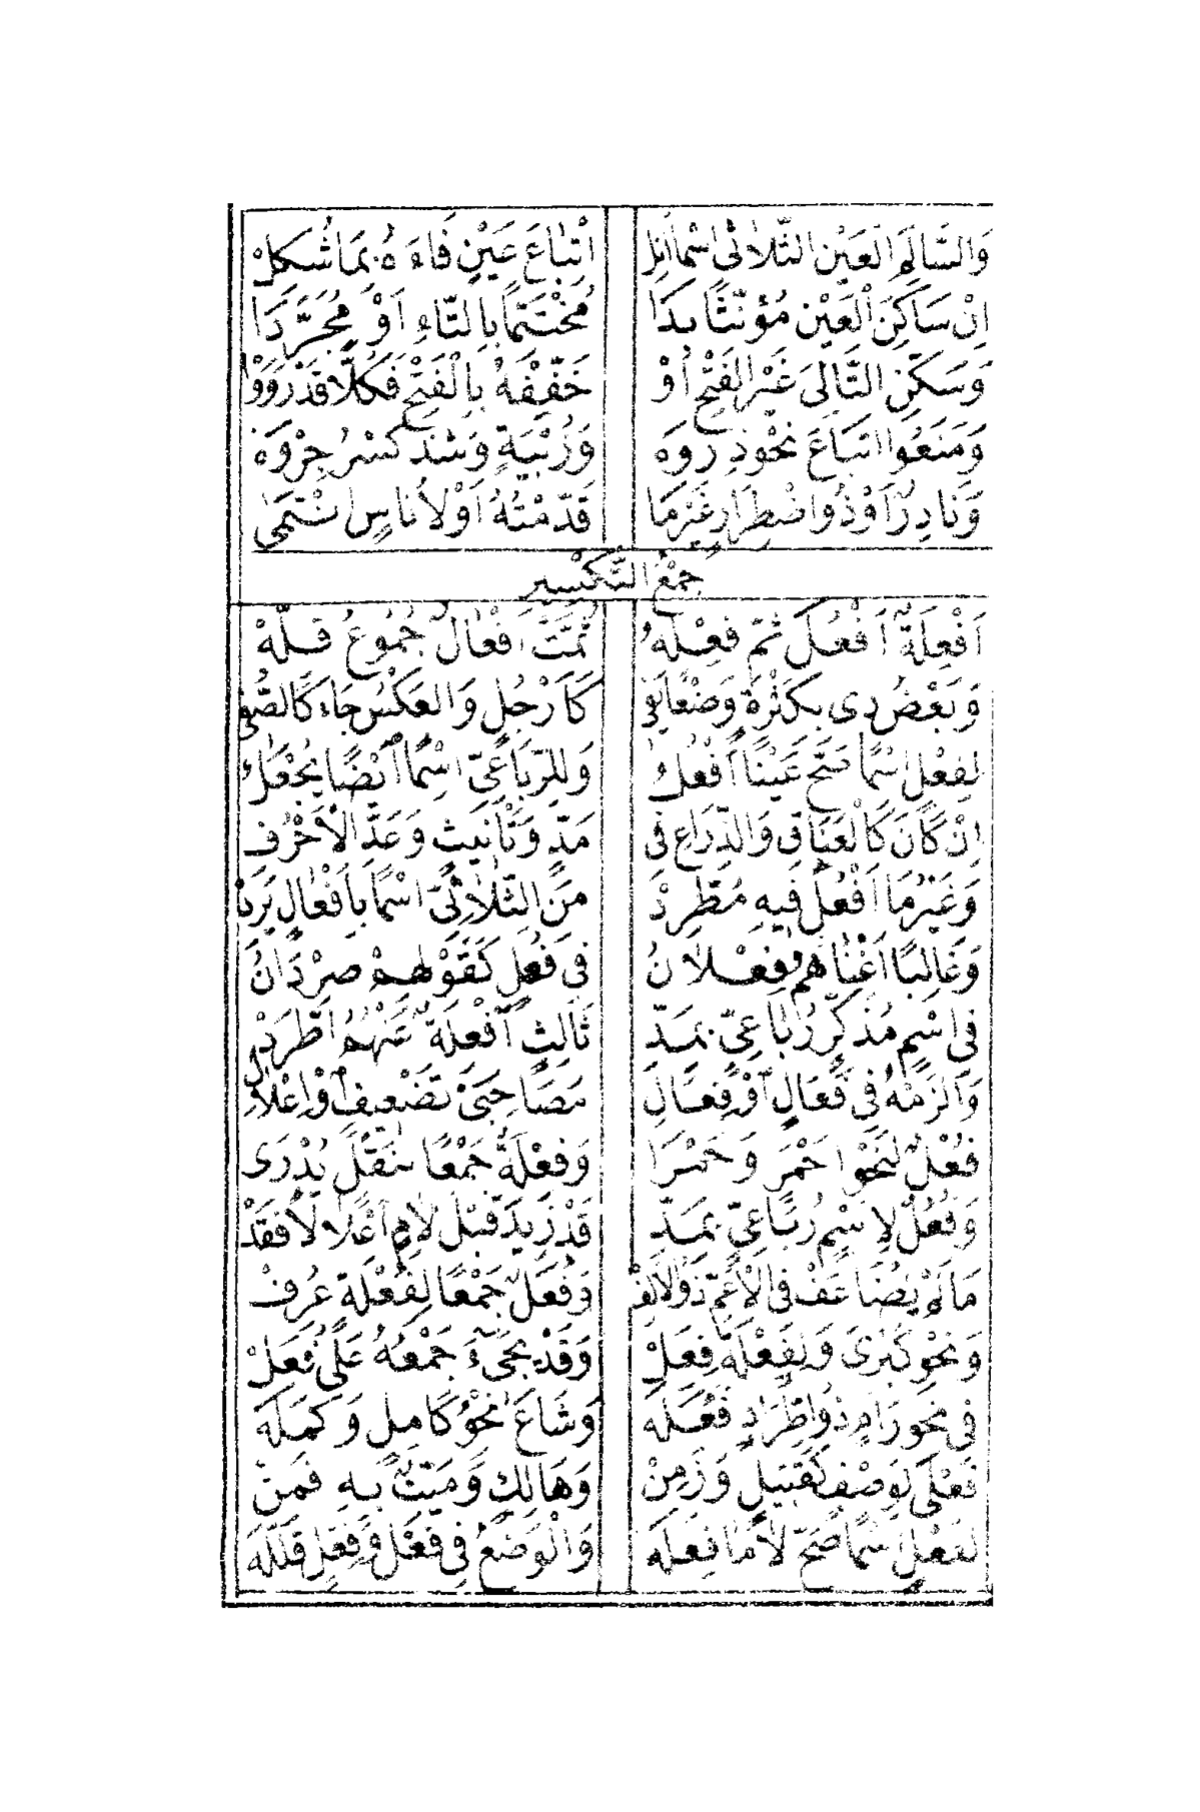 وَالسَّالِمَ الْعَيْنِ الثُّلَاثِي اسْمًا أَنِلْ اِتْبَاعَ عَيْنٍ فَاءَهُ بِمَا شُكِلْ
اِنْ سَاكِنَ الْعَيْنِ مُؤَنَّثًا بَدَا مُخْتَتَمًا بِالتَّاءِ اَوْ مُجَرَّدَا
وَسَكِّنِ التَّالِيَ غَيْرَ الْفَتْحِ أَوْ خَفِّفْهُ بِالْفَتْحِ فَكُلًّا قَدْ رَوَوْا
وَمَنَعُوا اتْبَاعَ نَحْوِ ذِرْوَهْ وَزُبْيَةٍ وَشَذَّ كَسْرُ جِرْوَهْ
وَنَادِرٌ اَوْ ذُو اضْطِرَارٍ غَيْرُ مَا قَدَّمْتُهُ اَوْ لِأُنَاسٍ انْتَمَى
جَمْعُ التَّكْسِيرِ
اَفْعِلَةٌ اَفْعُلُ ثُمَّ فِعْلَهْ ثُمَّتَ اَفْعَالٌ جُمُوعُ قِلَّهْ
وَبَعْضُ ذِي بِكَثْرَةٍ وَضْعًا يَفِي كَاَرْجُلٍ وَالْعَكْسُ جَاءَ كَالصُّفِي
لِفَعْلٍ اسْمًا صَحَّ عَيْنًا اَفْعُلُ وَلِلرُّبَاعِيِّ اسْمًا اَيْضًا يُجْعَلُ
اِنْ كَانَ كَالْعَنَاقِ وَالذِّرَاعِ فِي مَدٍّ وَتَأْنِيثٍ وَعَدِّ الْاَحْرُفِ
وَغَيْرُ مَا اَفْعُلُ فِيهِ مُطَّرِدْ مِنَ الثُّلَاثِيِّ اسْمًا بِاَفْعَالٍ يَرِدْ
وَغَالِبًا اَغْنَاهُمُ فِعْلَانُ فِي فُعَلٍ كَقَوْلِهِمْ صِرْدَانُ
فِي اسْمٍ مُذَكَّرٍ رُبَاعِيٍّ بِمَدّْ ثَالِثٍ اَفْعِلَةُ عَنْهُمُ اطَّرَدْ
وَالْزَمْهُ فِي فَعَالٍ اَوْ فِعَالِ مُصَاحِبَيْ تَضْعِيفٍ اَوْ اِعْلَالِ
فُعْلٌ لِنَحْوِ اَحْمَرٍ وَحَمْرَا وَفِعْلَةٌ جَمْعًا بِنَقْلٍ يُدْرَى
وَفُعُلٌ لِاسْمٍ رُبَاعِيٍّ بِمَدّْ قَدْ زِيدَ قَبْلَ لَامٍ اَعْلَالًا فَقَدْ
مَا لَمْ يُضَاعَفْ فِي الْاَعَمِّ ذُو الْاَلِفْ وَفُعَلٌ جَمْعًا لِفُعْلَةٍ عُرِفْ
وَنَحْوِ كُبْرَى وَلِفِعْلَةٍ فِعَلْ وَقَدْ يَجِيءُ جَمْعُهُ عَلَى فُعَلْ
فِي نَحْوِ رَامٍ ذُو اطِّرَادٍ فُعَلَهْ وَشَاعَ نَحْوُ كَامِلٍ وَكَمَلَهْ
فَعْلَى لِوَصْفٍ كَقَتِيلٍ وَزَمِنْ وَهَالِكٍ وَمَيِّتٌ بِهِ قَمِنْ
لِفُعْلٍ اسْمًا صَحَّ لَامًا فِعَلَهْ وَالْوَضْعُ فِي فَعْلٍ وَفِعْلٍ قَلَّلَهْ